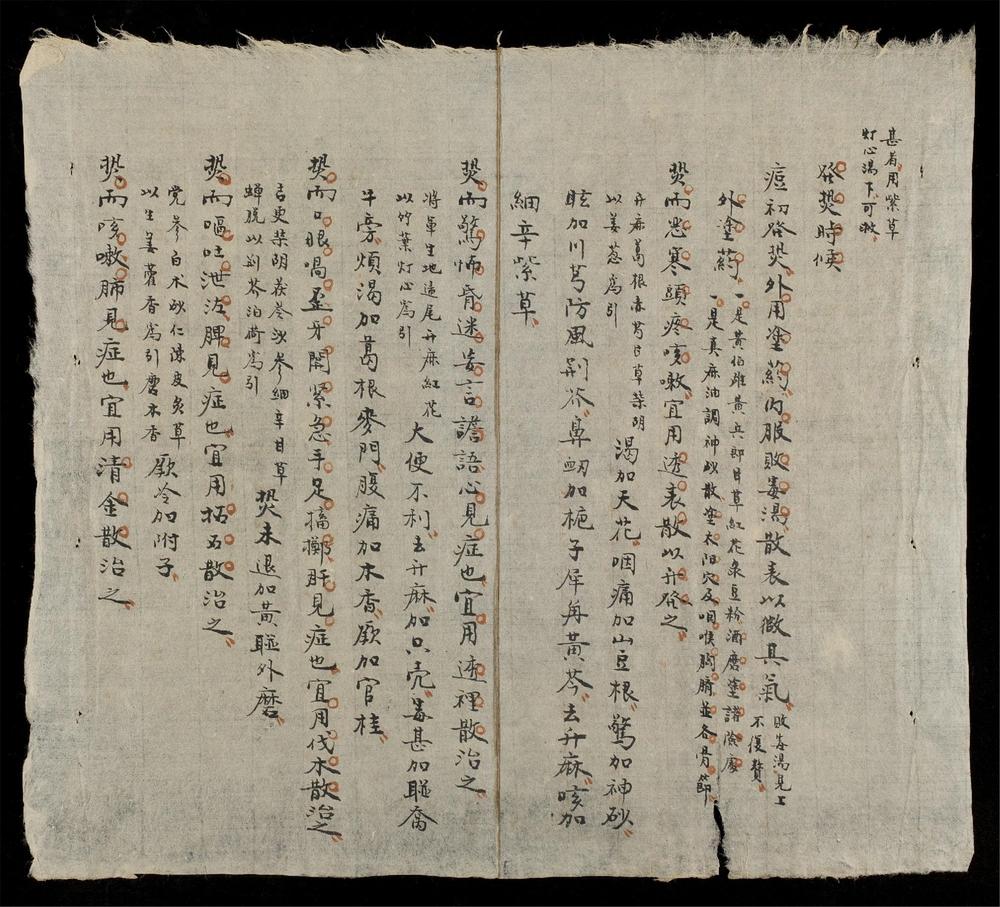 甚者用紫草
灯心湯下可救
發𤍠時候
痘初發𤍠外用塗葯內服敗毒湯散表以微具氣
敗毒湯見上
不復贅
外塗葯
一是黃伯雄黃兵郎甘草紅花彔豆粉酒磨塗諸陰處
一是真麻油調神砂散塗太阳穴及咽喉胸臍並各骨節
𤍠而恶寒頭疼咳嗽宜用透表散以升發之
升麻葛根赤芍甘草柴胡
以姜葱為引
渴加天花咽痛加山豆根驚加神砂
眩加川芎防風荊芥鼻衂加梔子犀角黃芩去升麻咳加
細辛紫草
𤍠而驚怖昏迷妄言譫語心見症也宜用達裡散治之
將軍生地連尾升麻紅花
以竹葉灯心為引
大便不利去升麻加只壳毒甚加
牛旁煩渴加葛根麥門腹痛加木香厥加官桂
𤍠而口眼喎歪牙関緊急手足搐掷肝見症也宜用伐木散治之
吉更柴胡茯苓沙參細辛甘草
蝉脱以荊芥泊荷為引
𤍠未退加黃聯外磨
𤍠而嘔吐泄泻脾見症也宜用拓五散治之
党參白术砂仁陳皮炙草
以生姜藿香為引磨木香
厥冷加附子
𤍠而咳嗽肺見症也宜用清金散治之